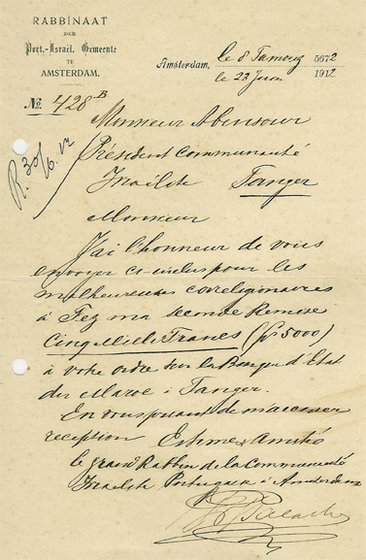 RABBINAAT
DER
Port.-Israël. Gemeente
TE
AMSTERDAM.
Amsterdam, le 8 Tamouz 5672
le 23 Juin 1912
No. 428 B
R. 30/6.12
Monsieur Abensour
Président Communauté
Israëlite Tanger
Monsieur
J'ai l'honneur de vous
envoyer ci inclus pour les
malheureuses coreligionaires
à Fez ma seconde Remise
Cinq Mille Francs (fr 5000)
à votre ordre sur la Banque d'Etat
du Maroc à Tanger.
En vous priant de m'accuser
reception Estime & Amitié
le grand Rabbin de la Communauté
Israelite Portugaise à Amsterdam
Palache